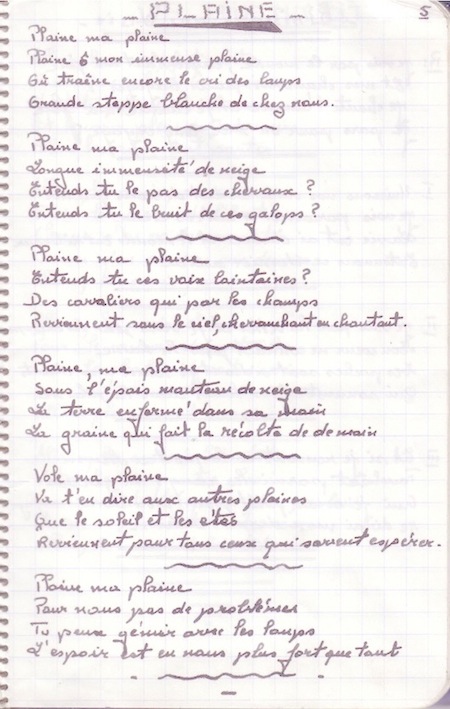 PLAINE
5
Plaine ma plaine
Plaine ô mon immense plaine
Où traîne encore le cri des loups
Grande steppe blanche de chez nous.
Plaine ma plaine
Longue immensité de neige
Entends tu le pas des chevaux ?
Entends tu le bruit de ces galops ?
Plaine ma plaine
Entends tu ces voix lointaines ?
Des cavaliers qui par les champs
Reviennent sous le ciel, chevauchant en chantant.
Plaine, ma plaine
Sous l'épais manteau de neige
La terre enferme dans sa main
La graine qui fait la récolte de demain
Vole ma plaine
Va t'en dire aux autres plaines
Que le soleil et les étés
Reviennent pour tous ceux qui savent espérer.
Plaine ma plaine
Pour nous pas de problèmes
Tu peux gémir avec les loups
L'espoir est en nous plus fort que tout